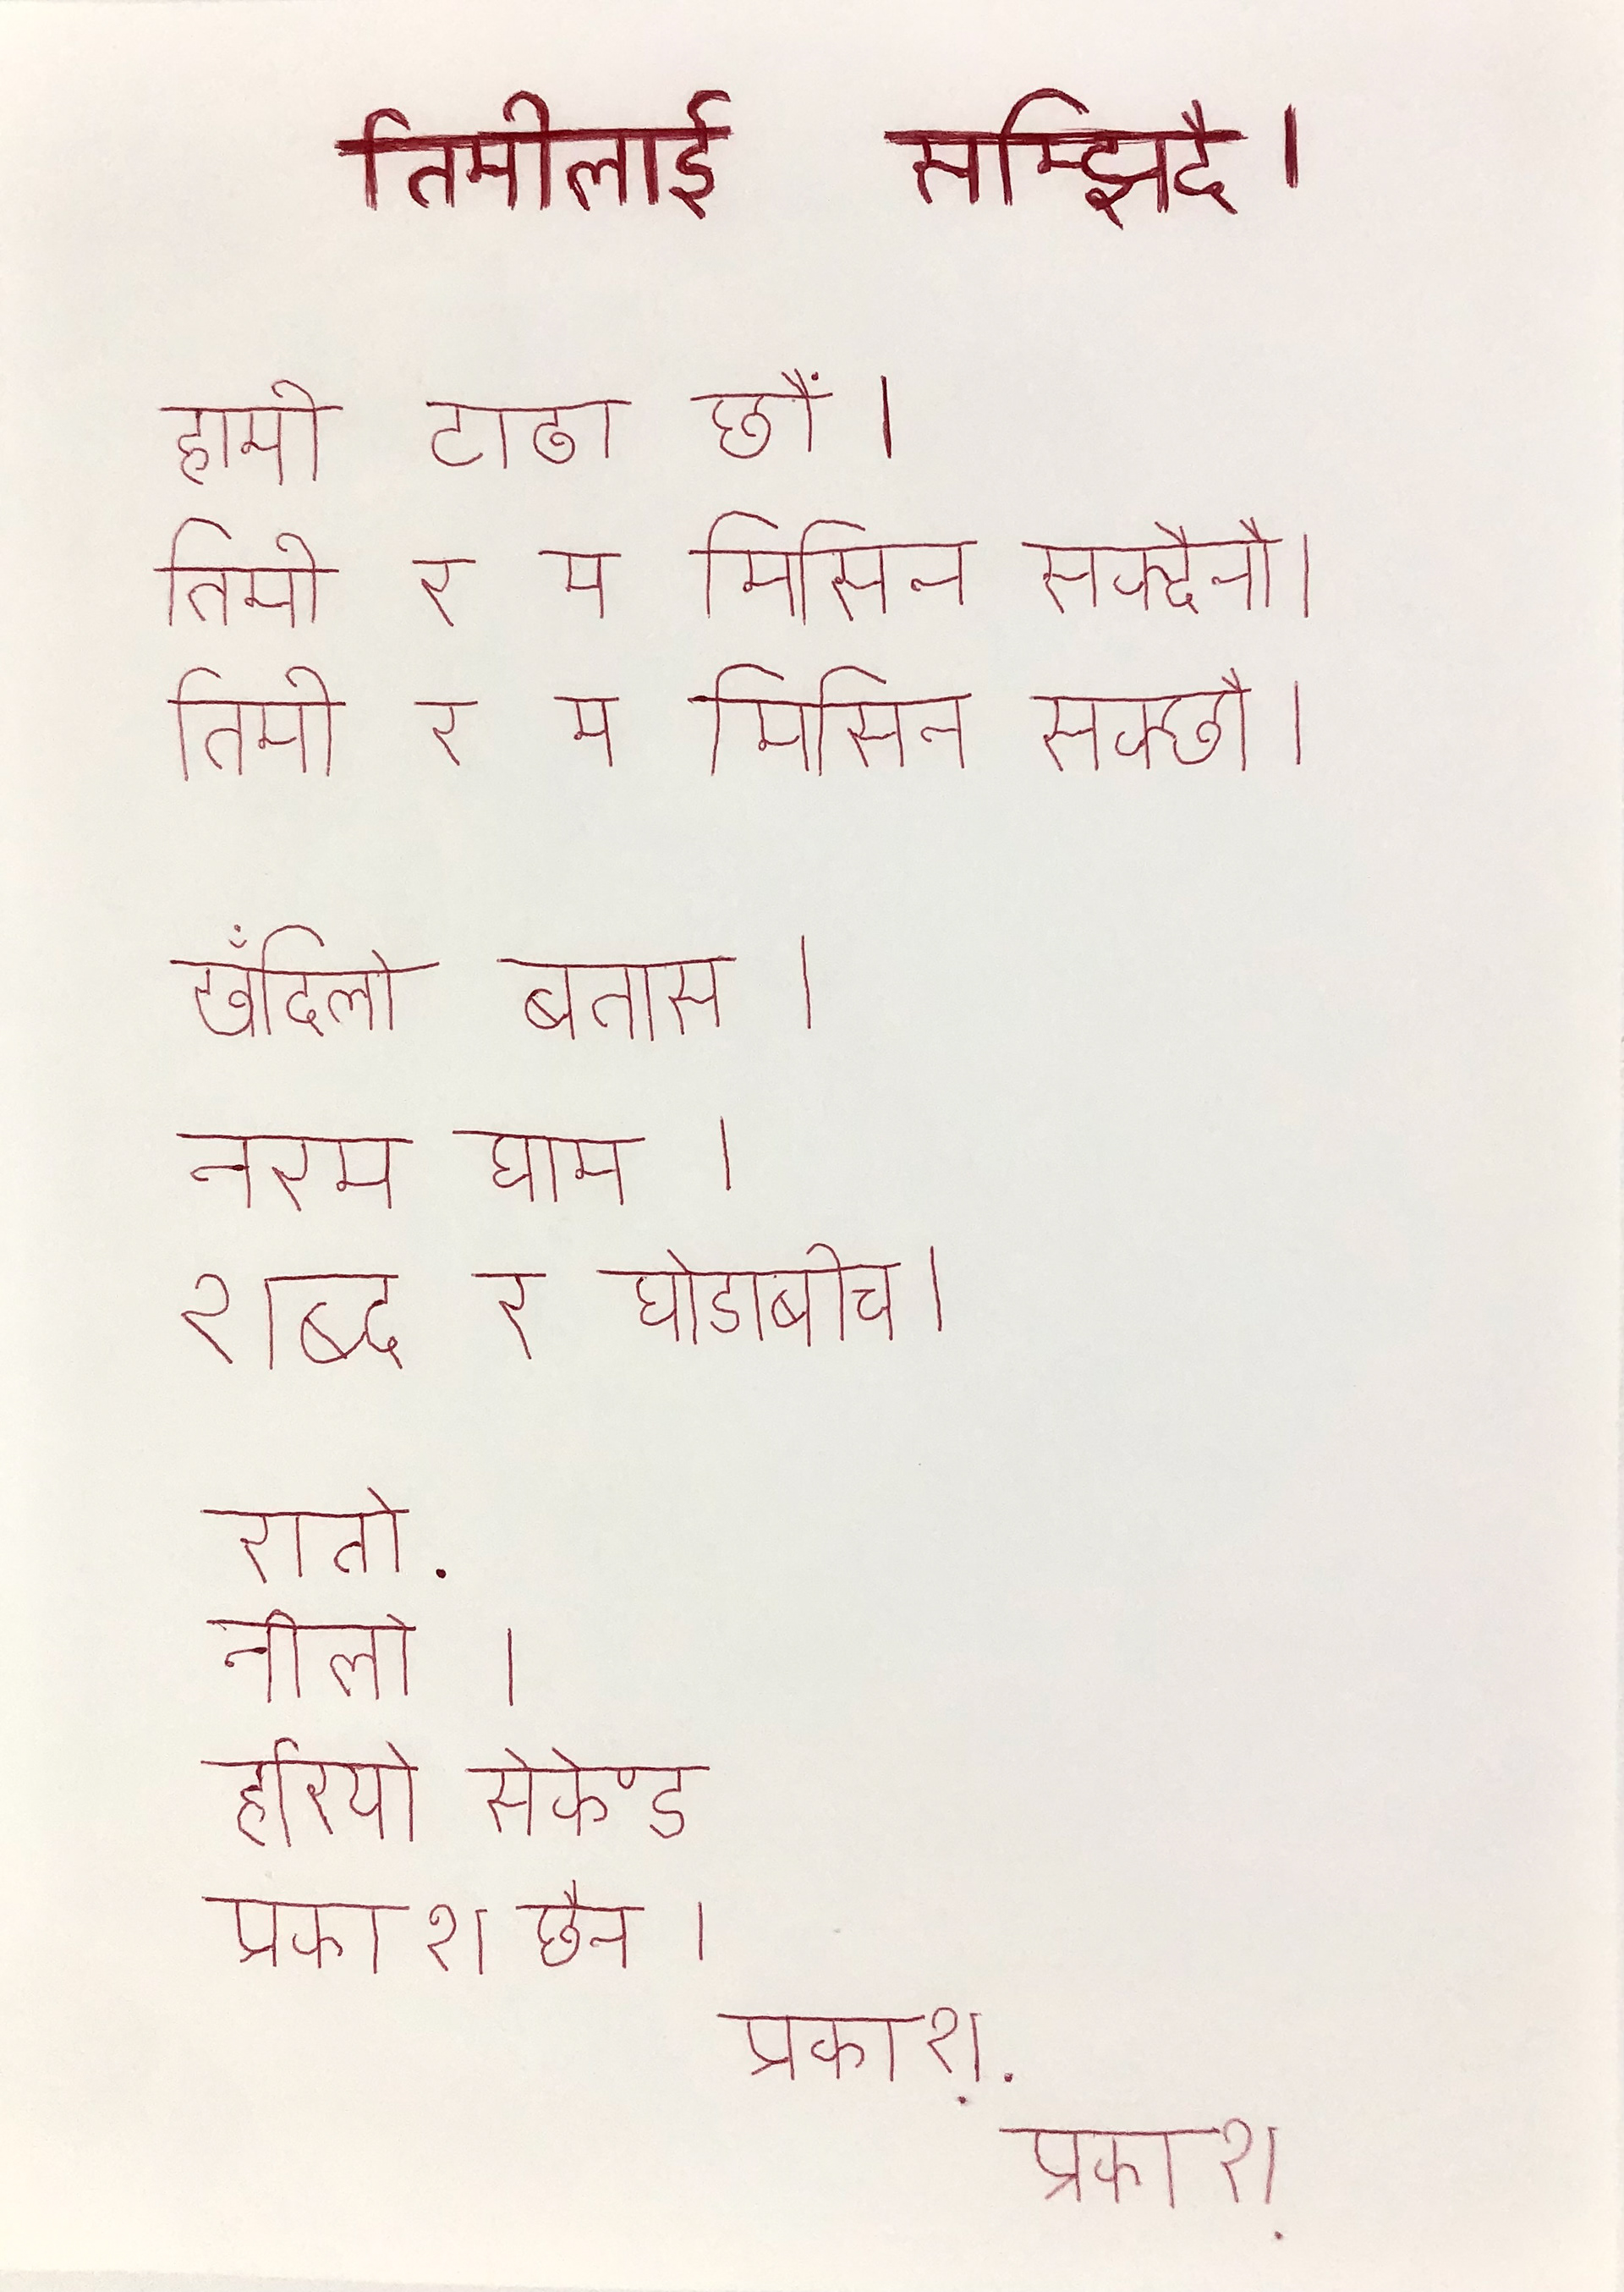 तिमीलाई सम्झिदै ।
हामी टाढा छौं ।
तिमी र म मिसिन सक्दैनौ ।
तिमी र म मिसिन सक्छौ ।
खँदिलो बतास ।
नरम घाम ।
शब्द र घोडाबीच ।
रातो.
नीलो ।
हरियो सेकेण्ड
प्रकाश छैन ।
प्रकाश.
प्रकाश.